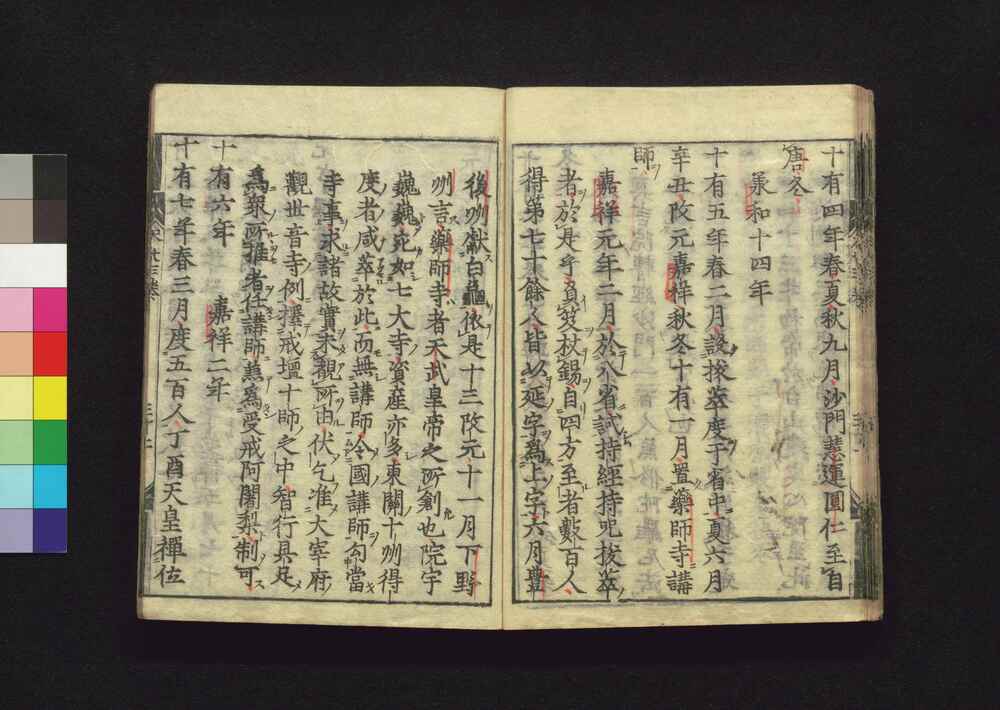 十有四年春夏秋九月沙門慧運圓仁至自
唐冬
承和十四年
十有五年春二月設挍萃度于省中夏六月
辛丑改元嘉祥秋冬十有一月置藥師寺講
師
嘉祥元年二月於八省試持經持呪挍萃
者於是乎負笈杖錫自四方至者數百人
得第七十餘人皆以延字爲上字六月豊
後州獻白龜依是十三改元十一月下野
州言藥師寺者天武皇帝之所創也院宇
巍巍宛如七大寺資產亦多東關十州得
度者咸萃於此而無講師令國講師勾當
寺事求諸故實未覩所由伏乞准大宰府
觀世音寺例擇戒壇十師之中智行具足
爲衆所推者任講師兼爲受戒阿闍梨制可
十有六年
嘉祥二年
十有七年春三月度五百人丁酉天皇禪位